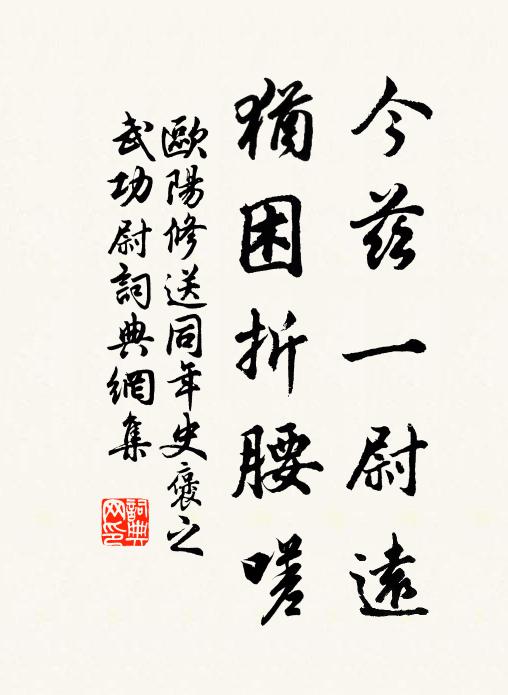 今茲一尉遠
猶困折腰嗟
歐陽修送同年史褒之
武功尉詞典網集
詞典網印